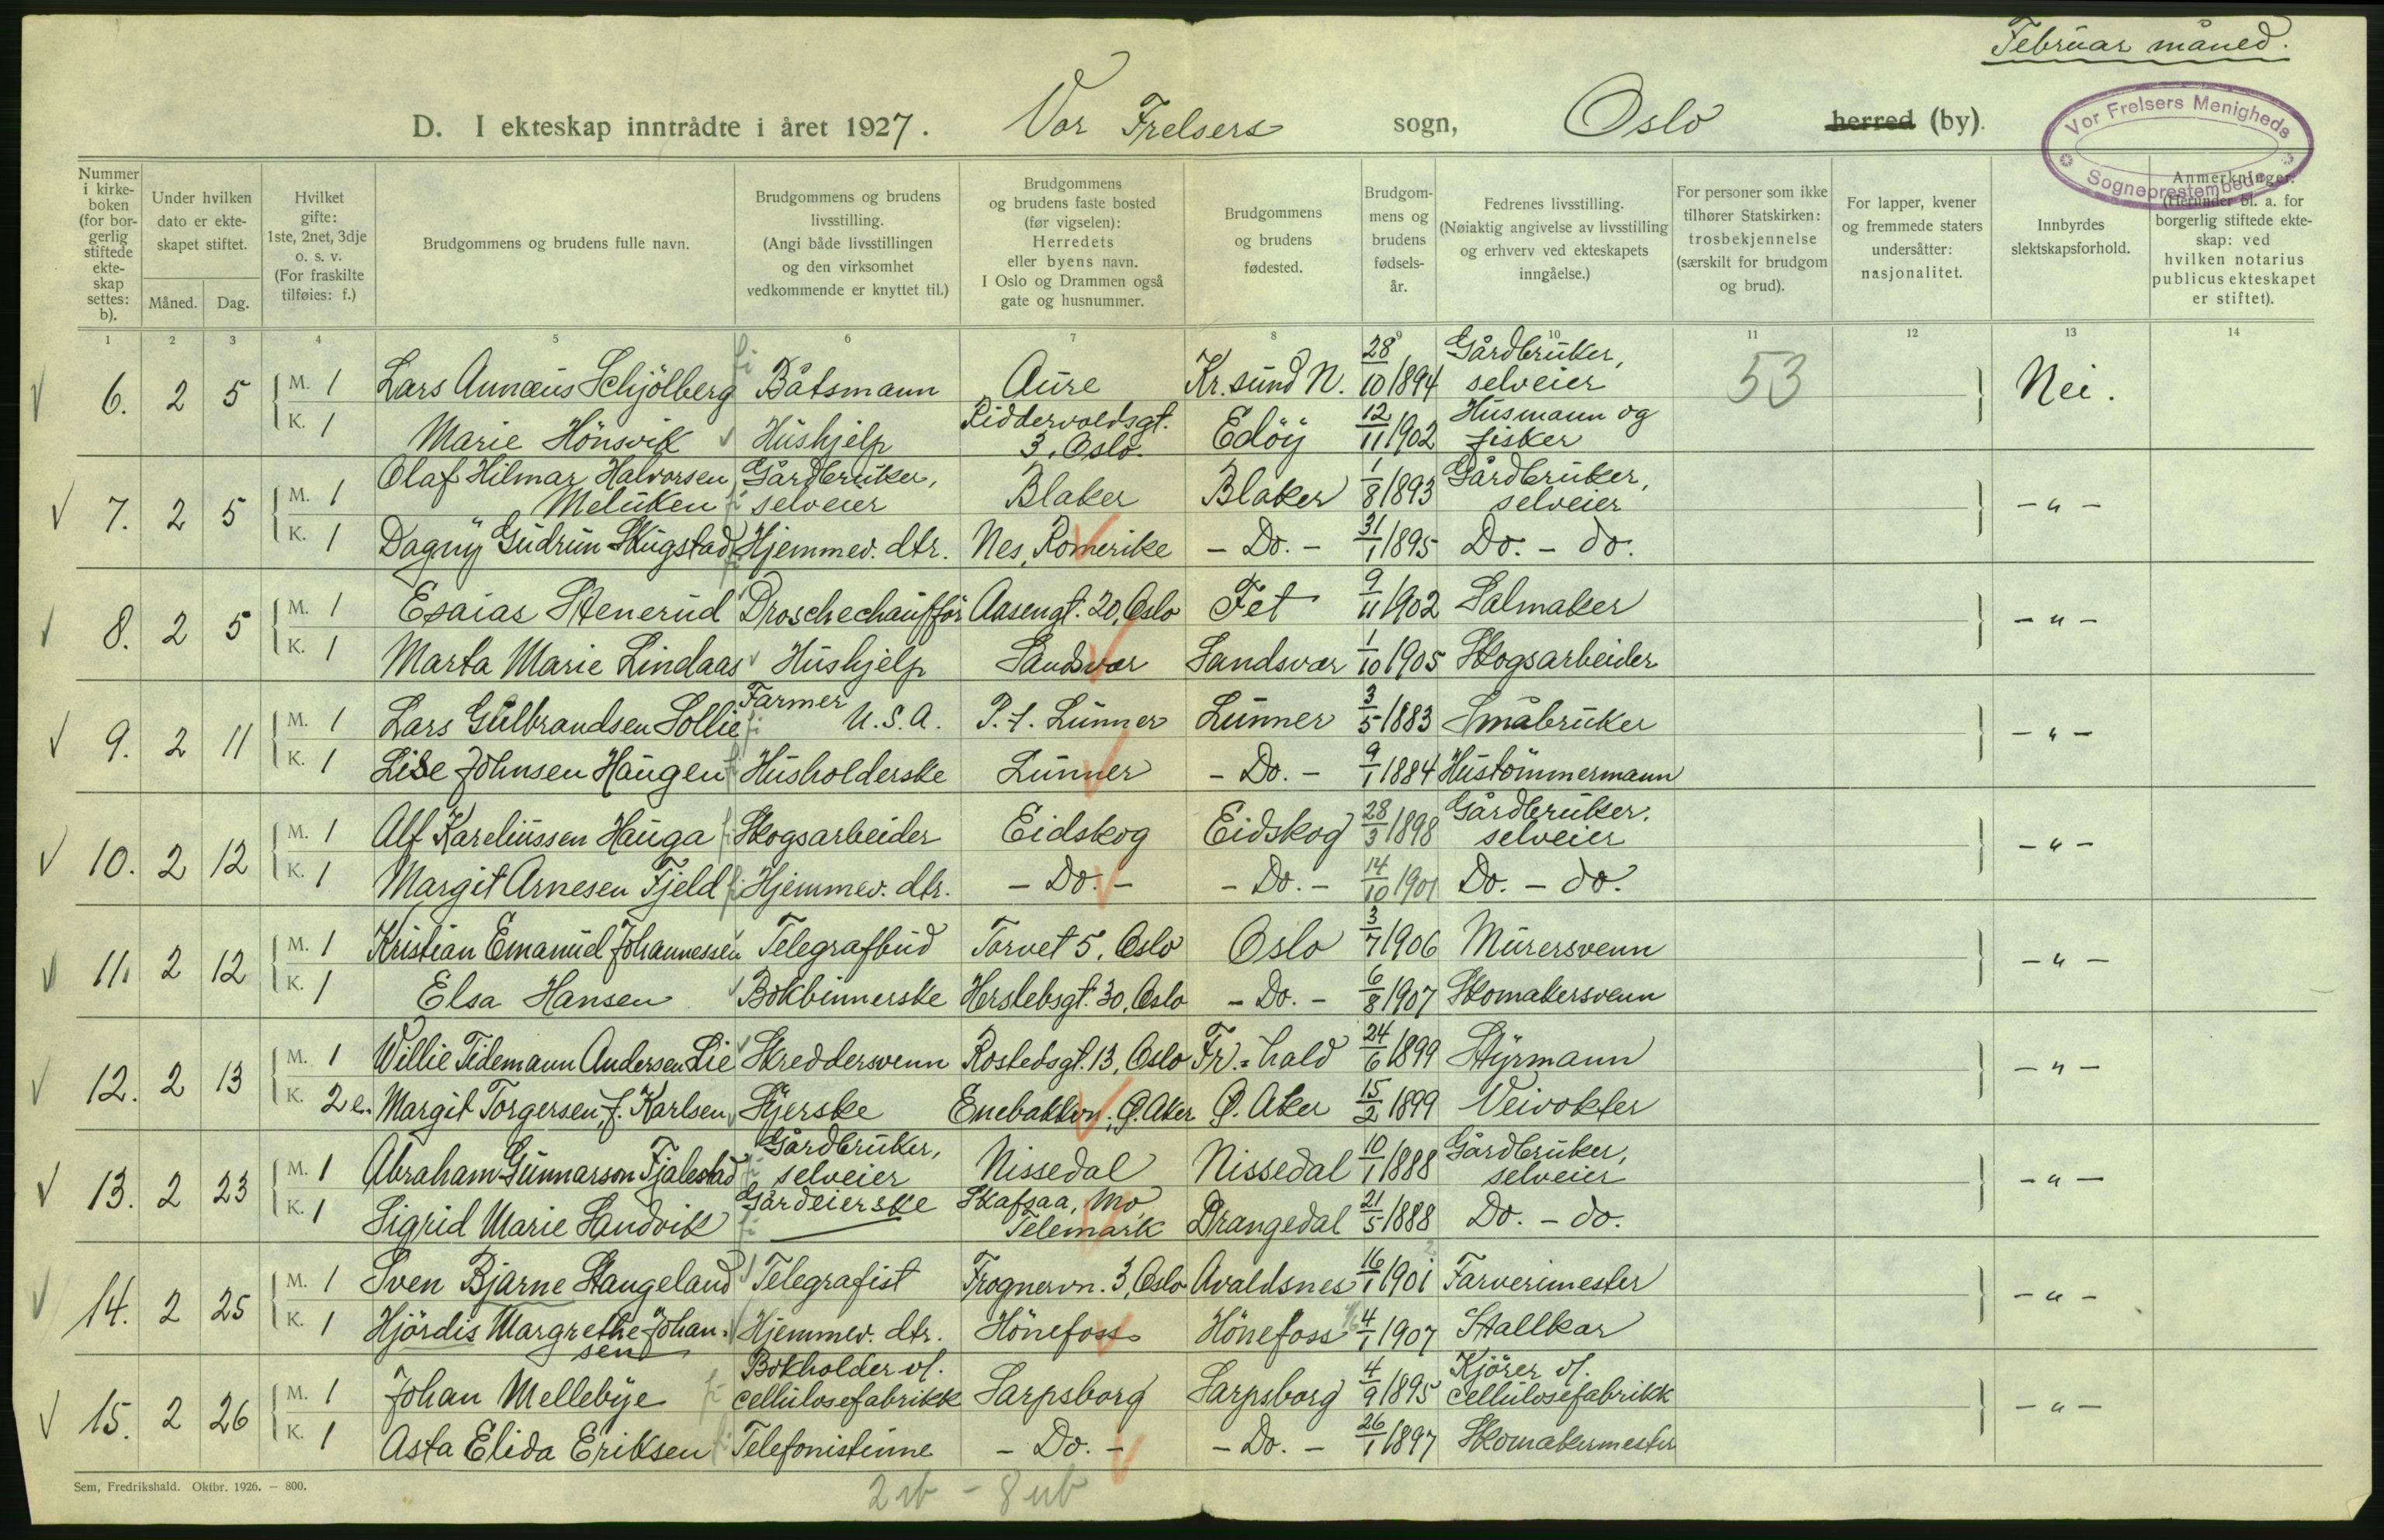 Februar måned.
D. I ekteskap inntrådte i året 1927. Vor Frelsers sogn, Oslo herred (by).
Vor Frelsers Menigheds Sogneprestembede
Nummer i kirke-boken (for bor-gerlig stiftede ekte-skap settes: b).
Under hvilken dato er ekte-skapet stiftet.
Måned. Dag.
Hvilket gifte: 1ste, 2net, 3dje o. s. v. (For fraskilte tilføies: f.)
Brudgommens og brudens fulle navn.
Brudgommens og brudens livsstilling. (Angi både livsstillingen og den virksomhet vedkommende er knyttet til.)
Brudgommens og brudens faste bosted (før vigselen): Herredets eller byens navn. I Oslo og Drammen også gate og husnummer.
Brudgommens og brudens fødested.
Brudgom-mens og brudens fødsels-år.
Fedrenes livsstilling. (Nøiaktig angivelse av livsstilling og erhverv ved ekteskapets inngåelse.)
For personer som ikke tilhører Statskirken: trosbekjennelse (særskilt for brudgom og brud).
For lapper, kvener og fremmede staters undersåtter: nasjonalitet.
Innbyrdes slektskapsforhold.
Anmerkninger. (Herunder bl. a. for borgerlig stiftede ekte-skap: ved hvilken notarius publicus ekteskapet er stiftet).
1 2 3 4 5 6 7 8 9 10 11 12 13 14
6. 2 5 M. 1 Lars Annæus Schjölberg Båtsmann Aure Kr.sund N. 28/10 1894 Gårdbruker, selveier 53 Nei.
K. 1 Marie Hönsvik Hushjelp Riddervoldsgt. 3, Oslo. Edöy 12/11 1902 Husmann og fisker
7. 2 5 M. 1 Olaf Hilmar Halvorsen Meluken Gårdbruker, selveier Blaker Blaker 1/8 1893 Gårdbruker, selveier - " -
K. 1 Dagny Gudrun Skugstad Hjemmev. dtr. Nes, Romerike - Do. - 31/1 1895 Do. - do.
8. 2 5 M. 1 Esaias Stenerud Droschechaufför Aasengt. 20, Oslo Fet 9/11 1902 Salmaker - " -
K. 1 Marta Marie Lindaas Hushjelp Sandsvær Sandsvær 1/10 1905 Skogsarbeider
9. 2 11 M. 1 Lars Gulbrandsen Sollie Farmer U.S.A. P.t. Lunner Lunner 3/5 1883 Småbruker - " -
K. 1 Lise Johnsen Haugen Husholderske Lunner - Do. - 9/1 1884 Hustömmermann
10. 2 12 M. 1 Alf Kareliussen Hauga Skogsarbeider Eidskog Eidskog 28/3 1898 Gårdbruker, selveier - " -
K. 1 Margit Arnesen Fjeld Hjemmev. dtr. - Do. - - Do. - 14/10 1901 Do. - do.
11. 2 12 M. 1 Kristian Emanuel Johannessen Telegrafbud Torvet 5, Oslo Oslo 3/7 1906 Murersvenn - " -
K. 1 Elsa Hansen Bokbinnerske Herslebsgt. 30, Oslo - Do. - 6/8 1907 Skomakersvenn
12. 2 13 M. 1 Willie Tidemann Andersen Lie Skreddersvenn Rostedsgt. 13, Oslo Fr.=hald 24/6 1899 Styrmann - " -
K. 2 e. Margit Torgersen, f. Karlsen Syerske Enebakkvn., Ø. Aker Ø. Aker 15/2 1899 Veivokter
13. 2 23 M. 1 Abraham Gunnarson Fjalestad Gårdbruker, selveier Nissedal Nissedal 10/1 1888 Gårdbruker, selveier - " -
K. 1 Sigrid Marie Sandvik Gårdeierske Skafsaa, Mo, Telemark Drangedal 21/5 1888 Do. - do.
14. 2 25 M. 1 Sven Bjarne Stangeland Telegrafist Frognervn. 3, Oslo Avaldsnes 16/1 1901 Farverimester - " -
K. 1 Hjördis Margrethe Johansen Hjemmev. dtr. Hönefoss Hönefoss 4/1 1907 Stallkar
15. 2 26 M. 1 Johan Mellebye Bokholder v/. cellulosefabrikk Sarpsborg Sarpsborg 4/9 1895 Kjörer v/. cellulosefabrikk - " -
K. 1 Asta Elida Eriksen Telefonistinne - Do. - - Do. - 26/1 1897 Skomakermester
Sem, Fredrikshald. Oktbr. 1926. — 800.
2 ub - 8 ub